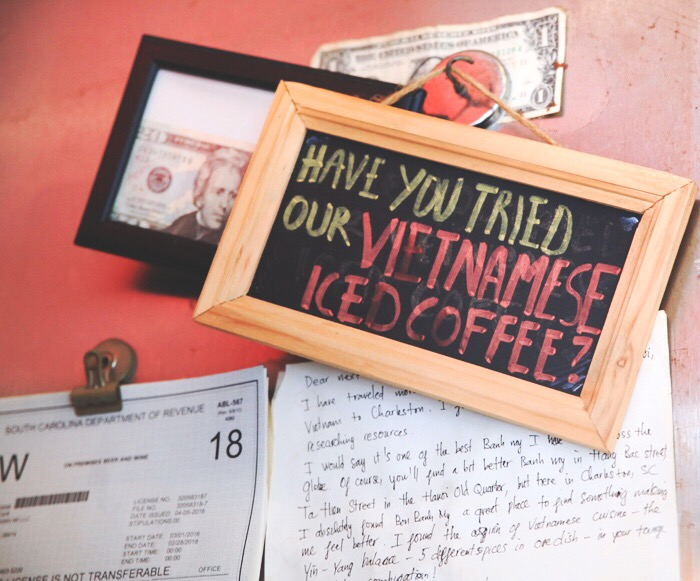 UNITED STATES OF AMERICA
1
1
HAVE YOU TRIED
OUR VIETNAMESE
ICED COFFEE?
SOUTH CAROLINA DEPARTMENT OF REVENUE
ABL-567
18
W
ON PREMISES BEER AND WINE
LICENSE NO.
FILE NO.
DATE ISSUED: 04-05-2018
STIPULATIONS:00
START DATE: 03/01/2018
END DATE: 02/28/2018
START TIME: 00:00
END TIME: 00:00
LICENSE IS NOT TRANSFERABLE
OFFICE
Dear
I have traveled
Vietnam to Charleston. I
researching resources.
I would say it's one of the best Banh my I have across the
globe. Of course, you'll find a bit better Banh my in Hang Bac street,
Ta Hien Street in the Hanoi Old Quarter, but here in Charleston, SC
I absolutely found Bon Banh My a great place to find something making
me feel better. I found the of Vietnamese cuisine - the
Yin - Yang balance - 5 different spices in one dish - in your
combination!